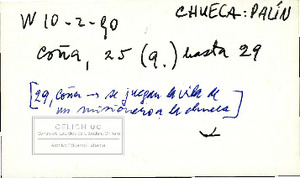 CHUECA: PALÍN
W 10-2-90
Coña, 25 (9.) hasta 29
[29, Coña → se juegan la vida de
un misionero a la chueca]
CELICH UC